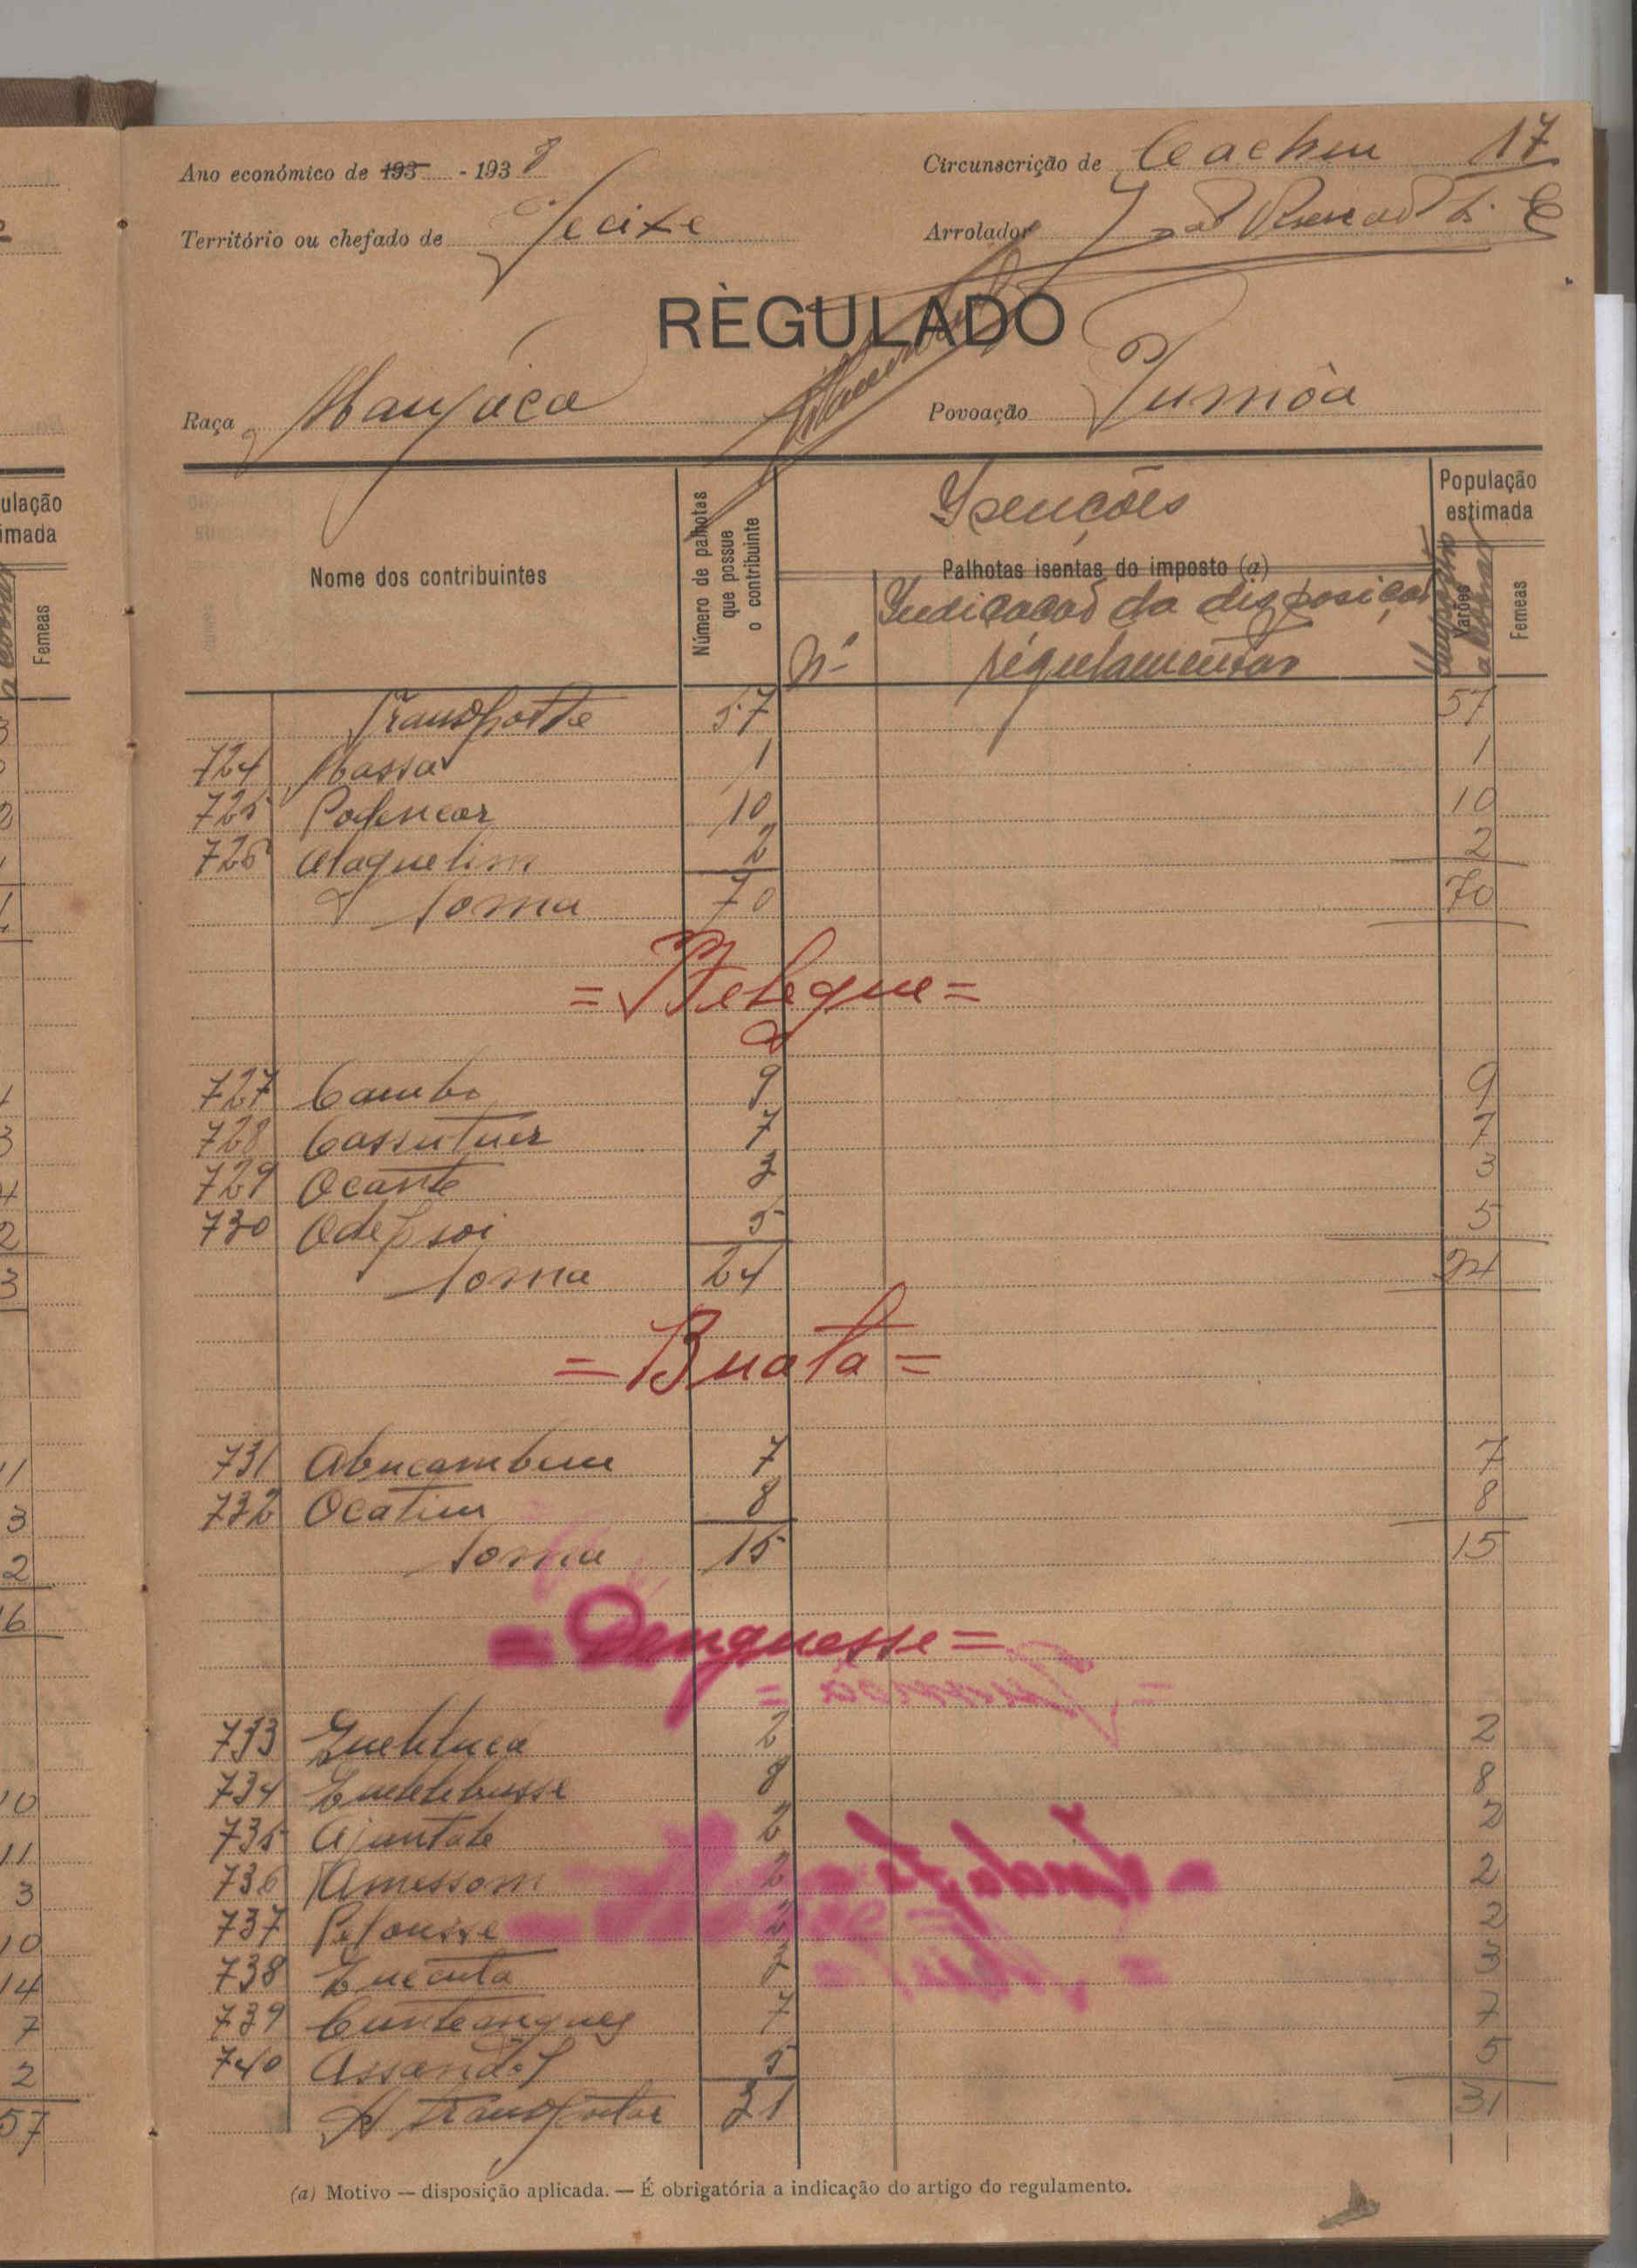 Ano económico de 193 - 1938
Circunscrição de Cacheu 17
Território ou chefado de Jecixe
Arrolador
RÈGULADO
Raça Manjaca
Povoação Jumôa
Nome dos contribuintes
Número de palhotas que possue o contribuinte
Isenções
Palhotas isentas do imposto (a)
Nº
Indicação da disposição
regulamentar
População estimada
Varões
Femeas
Transporte 57 57
724 Massa 1 1
725 Pofencar 10 10
726 Naquelim 2 2
Soma 70 70
= Peteque =
727 Cambo 9 9
728 Cassutuer 7 7
729 Ocante 3 3
730 Odepsoi 5 5
Soma 24 24
= Buata =
731 Abucambum 7 7
732 Ocatim 8 8
Soma 15 15
= Denguesse =
733 2 2
734 8 8
735 Ajuntate 2 2
736 Amessom 2 2
737 Petousse 2 2
738 3 3
739 7 7
740 5 5
A transportar 31 31
(a) Motivo — disposição aplicada. — É obrigatória a indicação do artigo do regulamento.
ulação
imada
Femeas
57